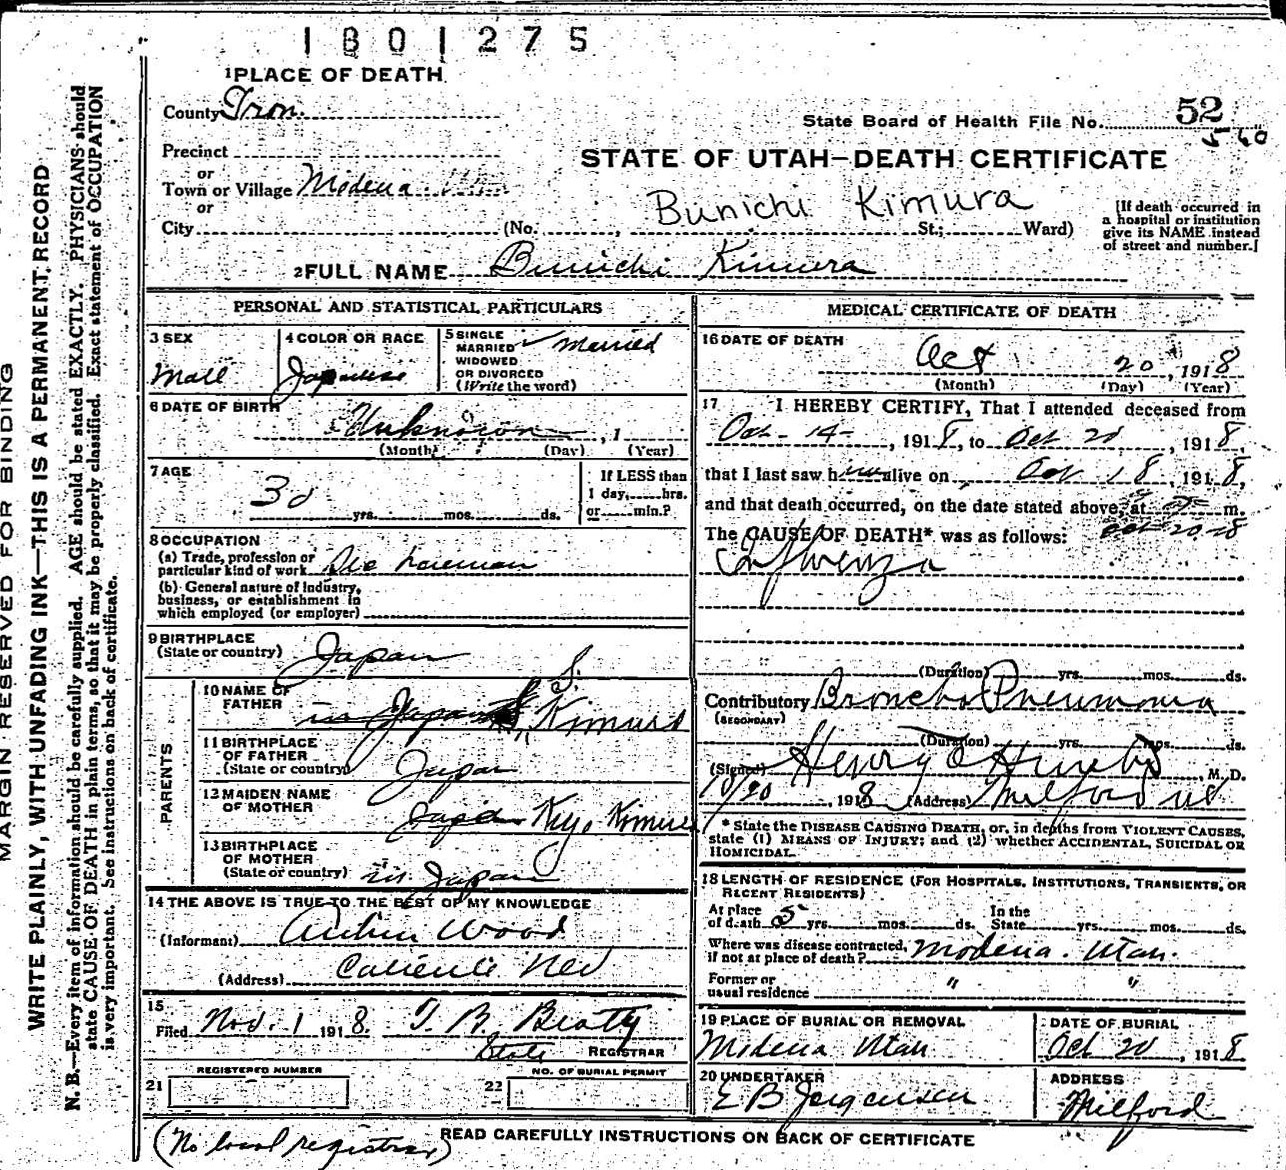 1801275
1 PLACE OF DEATH
County Iron.
State Board of Health File No. 52
560
Precinct
or
Town or Village Modena
or
STATE OF UTAH—DEATH CERTIFICATE
Bunichi Kimura
City (No. , St.; Ward)
[If death occurred in
a hospital or institution
give its NAME instead
of street and number.]
2 FULL NAME Bunichi Kimura
PERSONAL AND STATISTICAL PARTICULARS
3 SEX
Male
4 COLOR OR RACE
Japanese
5 SINGLE
MARRIED
WIDOWED
OR DIVORCED
(Write the word)
Married
6 DATE OF BIRTH
Unknown , 1
(Month) (Day) (Year)
7 AGE
30 yrs. mos. ds.
If LESS than
1 day, hrs.
or min.?
8 OCCUPATION
(a) Trade, profession or
particular kind of work
(b) General nature of industry,
business, or establishment in
which employed (or employer)
9 BIRTHPLACE
(State or country) Japan
PARENTS
10 NAME OF
FATHER S. Kimura
11 BIRTHPLACE
OF FATHER
(State or country) Japan
12 MAIDEN NAME
OF MOTHER Japan Kiyo Kimura
13 BIRTHPLACE
OF MOTHER
(State or country) in Japan
14 THE ABOVE IS TRUE TO THE BEST OF MY KNOWLEDGE
(Informant) Wood
(Address) Caliente Nev
15
Filed Nov. 1 1918. T. B. Beatty
State REGISTRAR
REGISTERED NUMBER
21
NO. OF BURIAL PERMIT
22
MEDICAL CERTIFICATE OF DEATH
16 DATE OF DEATH
Oct 20, 1918
(Month) (Day) (Year)
17 I HEREBY CERTIFY, That I attended deceased from
Oct - 14 - , 1918, to Oct 20 , 1918,
that I last saw him alive on Oct 18, 1918,
and that death occurred, on the date stated above, at m.
The CAUSE OF DEATH* was as follows:
Influenza
(Duration) yrs. mos. ds.
Contributory Broncho Pneumonia
(SECONDARY)
(Duration) yrs. mos. ds.
(Signed) Henry , M. D.
10/20 1918 (Address) Milford
* State the DISEASE CAUSING DEATH, or, in deaths from VIOLENT CAUSES,
state (1) MEANS OF INJURY; and (2) whether ACCIDENTAL, SUICIDAL OR
HOMICIDAL.
18 LENGTH OF RESIDENCE (FOR HOSPITALS, INSTITUTIONS, TRANSIENTS, OR
RECENT RESIDENTS)
At place
of death 5 yrs. mos. ds.
In the
State yrs. mos. ds.
Where was disease contracted,
if not at place of death? Modena. Utah.
Former or
usual residence " "
19 PLACE OF BURIAL OR REMOVAL
Modena Utah
DATE OF BURIAL
Oct 20, 1918
20 UNDERTAKER
E B Jorgensen
ADDRESS
Milford
READ CAREFULLY INSTRUCTIONS ON BACK OF CERTIFICATE
(No local registrar)
MARGIN RESERVED FOR BINDING
WRITE PLAINLY, WITH UNFADING INK—THIS IS A PERMANENT RECORD
N. B.—Every item of information should be carefully supplied. AGE should be stated EXACTLY. PHYSICIANS should
state CAUSE OF DEATH in plain terms, so that it may be properly classified. Exact statement of OCCUPATION
is very important. See instructions on back of certificate.